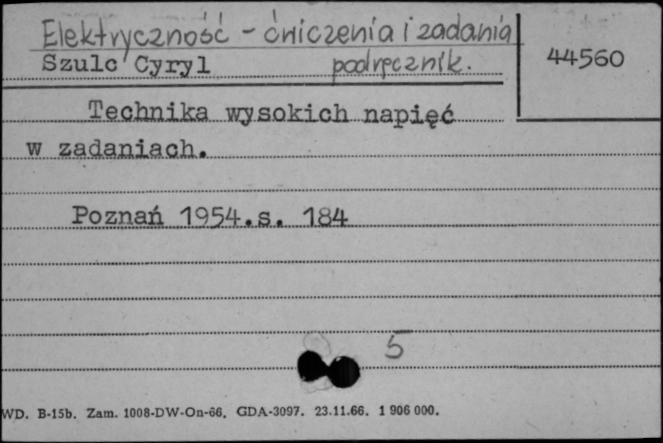 Elektryczność - ćwiczenia i zadania
44560
Szulc Cyryl podręcznik.
Technika wysokich napięć
w zadaniach.
Poznań 1954.s. 184
5
WD. B-15b. Zam. 1008-DW-On-66. GDA-3097. 23.11.66. 1 906 000.